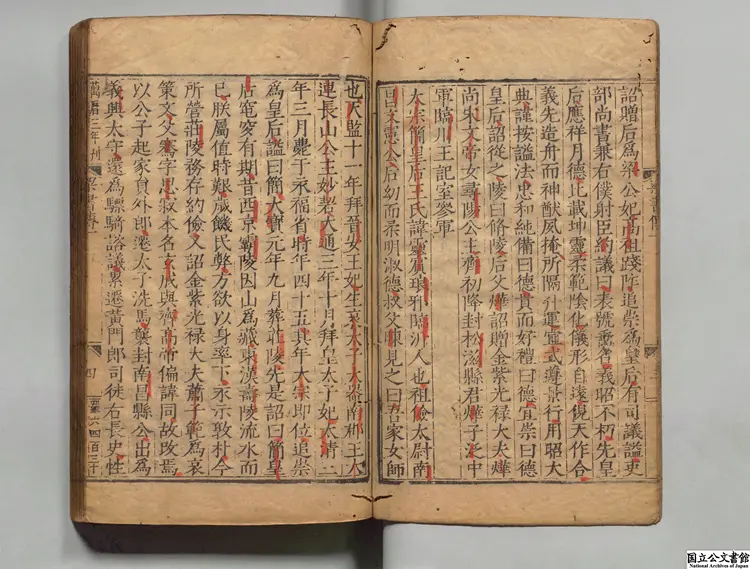 詔贈后爲梁公妃高祖踐阼追崇爲皇后有司議謚吏
部尚書兼右僕射臣約議曰表號垂名義昭不朽先皇
后應祥月德比載坤靈柔範陰化儀形自遠俔天作合
義先造舟而神猷夙掩所隔升運宜式遵景行用昭大
典謹按謚法忠和純備曰德貴而好禮曰德宜崇曰德
皇后詔從之陵曰脩陵后父燁詔贈金紫光祿大夫燁
尚宋文帝女尋陽公主齊初降封松滋縣君燁子泛中
軍臨川王記室參軍
太宗簡皇后王氏諱靈賓琅邪臨沂人也祖儉太尉南
昌文憲公后幼而柔明淑德叔父暕見之曰吾家女師
也天監十一年拜晉安王妃生哀太子大器南郡王大
連長山公主妙䂮大通三年十月拜皇太子妃太清二
年三月薨于永福省時年四十五其年太宗即位追崇
爲皇后謚曰簡大寶元年九月葬莊陵先是詔曰簡皇
后窀穸有期昔西京霸陵因山爲藏東漢壽陵流水而
已朕屬值時艱歲饑民弊方欲以身率下永示敦朴今
所營莊陵務存約儉又詔金紫光祿大夫蕭子範爲哀
策文父騫字思寂本名玄成與齊高帝偏諱同故改焉
以公子起家員外郎遷太子洗馬襲封南昌縣公出爲
義興太守還爲驃騎諮議累遷黃門郎司徒右長史性
萬曆三年刊
梁書傳一
四
六四百三十
国立公文書館
National Archives of Japan